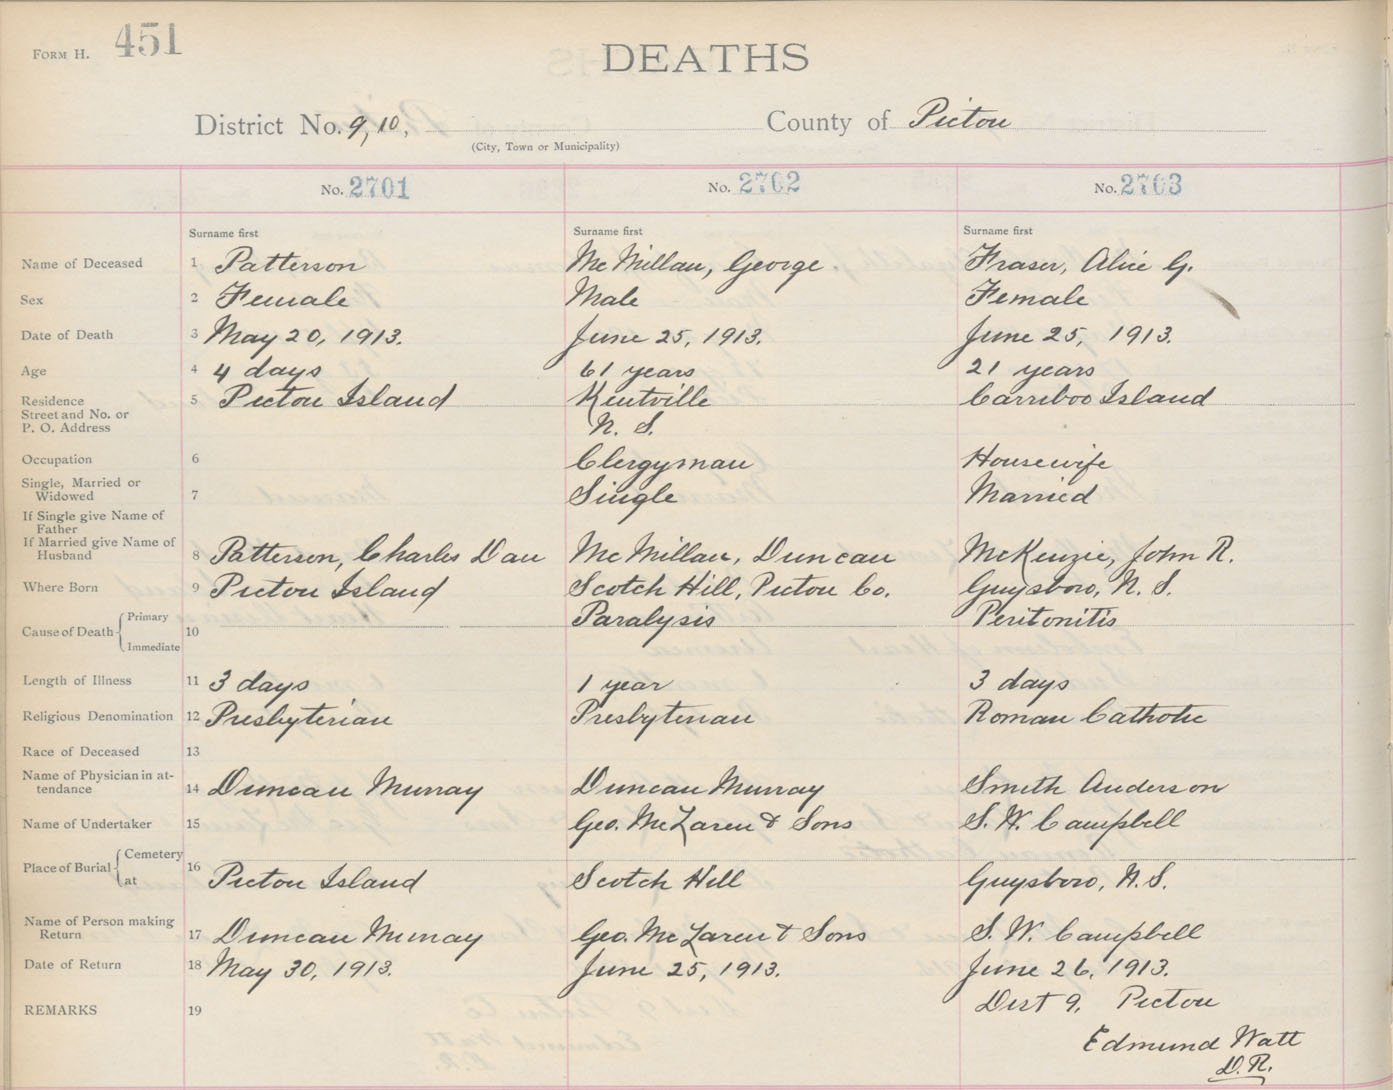 FORM H. 451
DEATHS
District No. 9, 10,
County of Pictou
(City, Town or Municipality)
No. 2701
No. 2702
No. 2703
Surname first
Surname first
Surname first
Name of Deceased 1 Patterson
McMillan, George
Fraser, Alice G.
Sex 2 Female
Male
Female
Date of Death 3 May 20, 1913.
June 25, 1913.
June 25, 1913.
Age 4 4 days
61 years
21 years
Residence
Street and No. or
P. O. Address
5 Pictou Island
Kentville
N. S.
Carriboo Island
Occupation 6
Clergyman
Housewife
Single, Married or
Widowed
7
Single
Married
If Single give Name of
Father
If Married give Name of
Husband
8 Patterson, Charles Dan
McMillan, Duncan
McKenzie, John R.
Where Born 9 Pictou Island
Scotch Hill, Pictou Co.
Guysboro, N. S.
Cause of Death Primary
Immediate
10
Paralysis
Peritonitis
Length of Illness 11 3 days
1 year
3 days
Religious Denomination 12 Presbyterian
Presbyterian
Roman Catholic
Race of Deceased 13
Name of Physician in at-
tendance
14 Duncan Murray
Duncan Murray
Smith Anderson
Name of Undertaker 15
Geo. McLaren & Sons
S. W. Campbell
Place of Burial Cemetery
at
16 Pictou Island
Scotch Hill
Guysboro, N. S.
Name of Person making
Return
17 Duncan Murray
Geo. McLaren & Sons
S. W. Campbell
Date of Return 18 May 30, 1913.
June 25, 1913.
June 26, 1913.
REMARKS 19
Dist 9, Pictou
Edmund Watt
D. R.